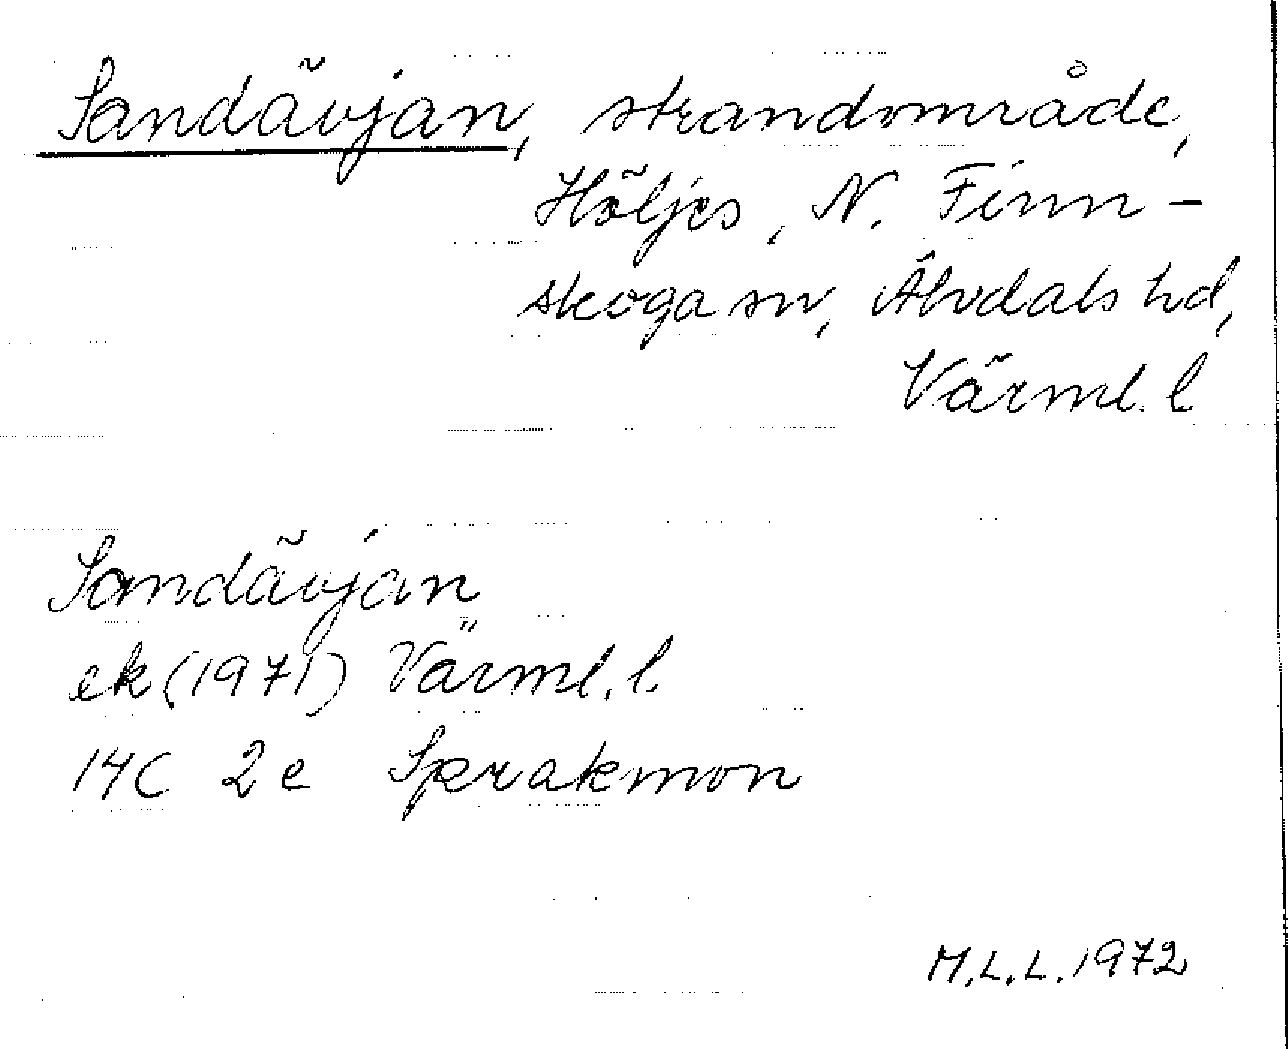 Sandävjan, strandområde,
Höljes, N. Finn-
skoga sn, Älvdals hd,
Värml. l
Sandävjan
ek (1971) Värml. l.
14C 2e Sprakmon
M.L.L. 1972